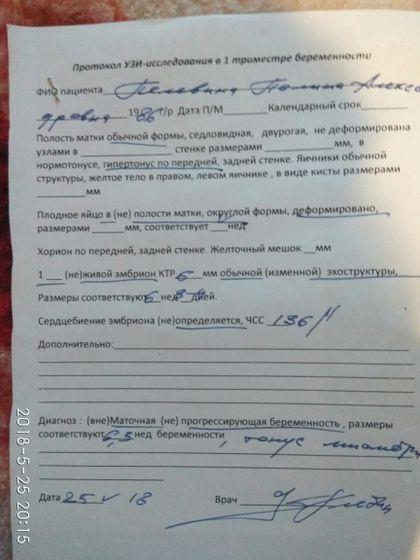 Протокол УЗИ-исследования в 1 триместре беременности
ФИО пациента Полина Алекса
ндровна 1986г/р Дата П/М________ Календарный срок________
Полость матки обычной формы, седловидная, двурогая, не деформирована
узлами в ________________ стенке размерами ____________мм, в
нормотонусе, гипертонус по передней, задней стенке. Яичники обычной
структуры, желтое тело в правом, левом яичнике , в виде кисты размерами
________мм
Плодное яйцо в (не) полости матки, округлой формы, деформировано,
размерами ______мм, соответствует ___нед
Хорион по передней, задней стенке. Желточный мешок __мм
1 ___ (не)живой эмбрион КТР 6 мм обычной (изменной) эхоструктуры,
Размеры соответствуют 6 нед дней.
Сердцебиение эмбриона (не)определяется, ЧСС 136
Дополнительно:
Диагноз : (вне)Маточная (не) прогрессирующая беременность , размеры
соответствуют 6,3 нед беременности, тонус миометрия
Дата 25 V 18 Врач
2018-5-25 20:15